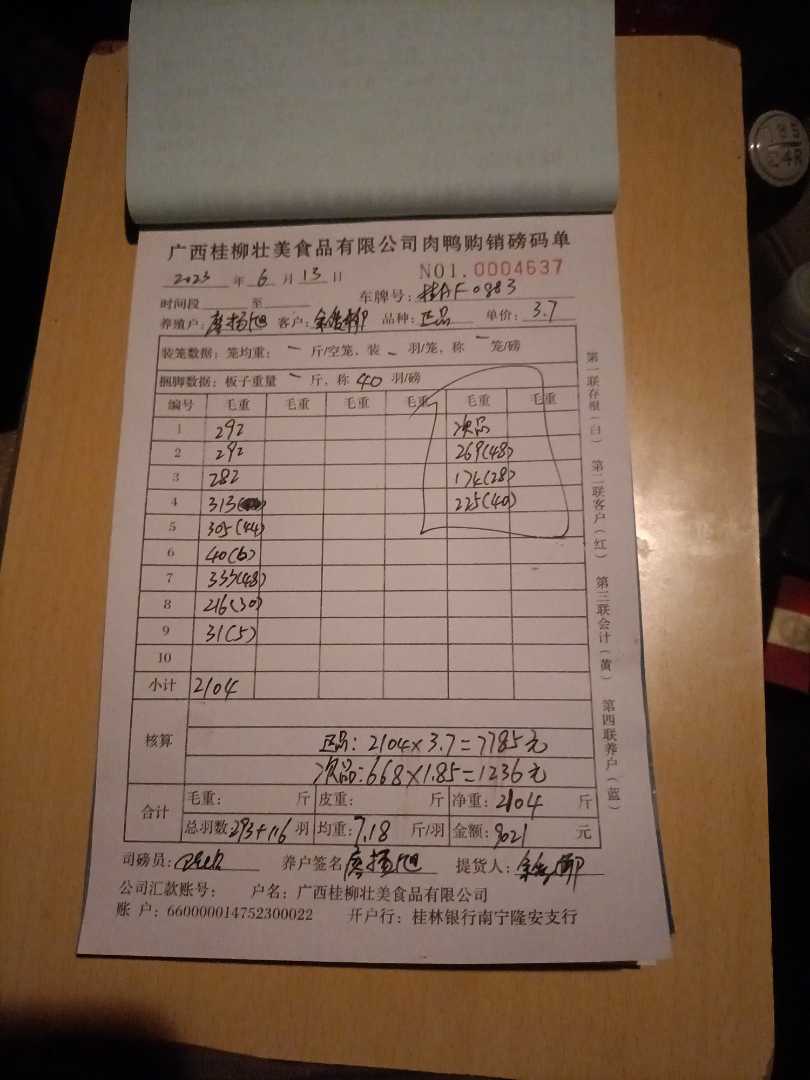 广西桂柳壮美食品有限公司肉鸭购销磅码单
2023 年 6 月 13 日 NO1.0004637
时间段 至 车牌号:桂AF0883
养殖户: 客户: 品种:正品 单价:3.7
装笼数据:笼均重: 一 斤/空笼,装 一 羽/笼,称 一 笼/磅
捆脚数据:板子重量 一 斤,称 40 羽/磅
编号 毛重 毛重 毛重 毛重 毛重 毛重
1 292 次品
2 292 269(48)
3 282 174(28)
4 313 225(40)
5 305(44)
6 40(6)
7 333(48)
8 216(30)
9 31(5)
10
小计 2104
核算
正品:2104×3.7=7785元
次品:668×1.85=1236元
合计 毛重: 斤 皮重: 斤 净重:2104 斤
总羽数293+116 羽 均重:7.18 斤/羽 金额:9021 元
司磅员: 养户签名 提货人:
公司汇款账号: 户名:广西桂柳壮美食品有限公司
账 户:660000014752300022 开户行:桂林银行南宁隆安支行
第一联存根(白) 第二联客户(红) 第三联会计(黄) 第四联养户(蓝)